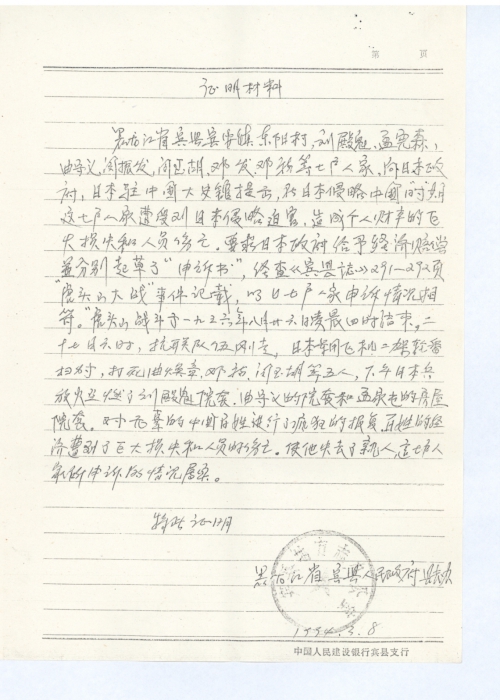 第 页
证明材料
黑龙江省宾县宾安镇东阳村,刘殿
由守义,闫振发,闫玉胡,邓发,邓 等七户人家,向日本政
府,日本驻中国大使馆提出,对日本侵略中国的时期
这七户人家遭受到日本侵略迫害,造成个人财产的巨
大损失和人员伤亡。要求日本政府给予经济赔偿
并分别起草了“申诉书”,经查《宾县志》291—292页
大战”事件记载,以上七户人家申诉情况相
符。 山战斗于一九三六年八月廿六日凌晨四时结束,二
十七日六时,抗联队伍刚走,日本关闭飞机二架轮番
扫射,打死由 ,邓 ,闫玉胡等五人,下午日本兵
放火烧了刘殿 院套,由守义的院套和孟 的房屋
院套。对无辜的中国百姓进行了疯狂的报复,百姓的经
济遭到了巨大损失和人员的伤亡。使他失去了亲人,这七户人
家所申诉的情况属实。
特此证明
黑龙江省宾县人民政府县志办
1994.3.8
中国人民建设银行宾县支行